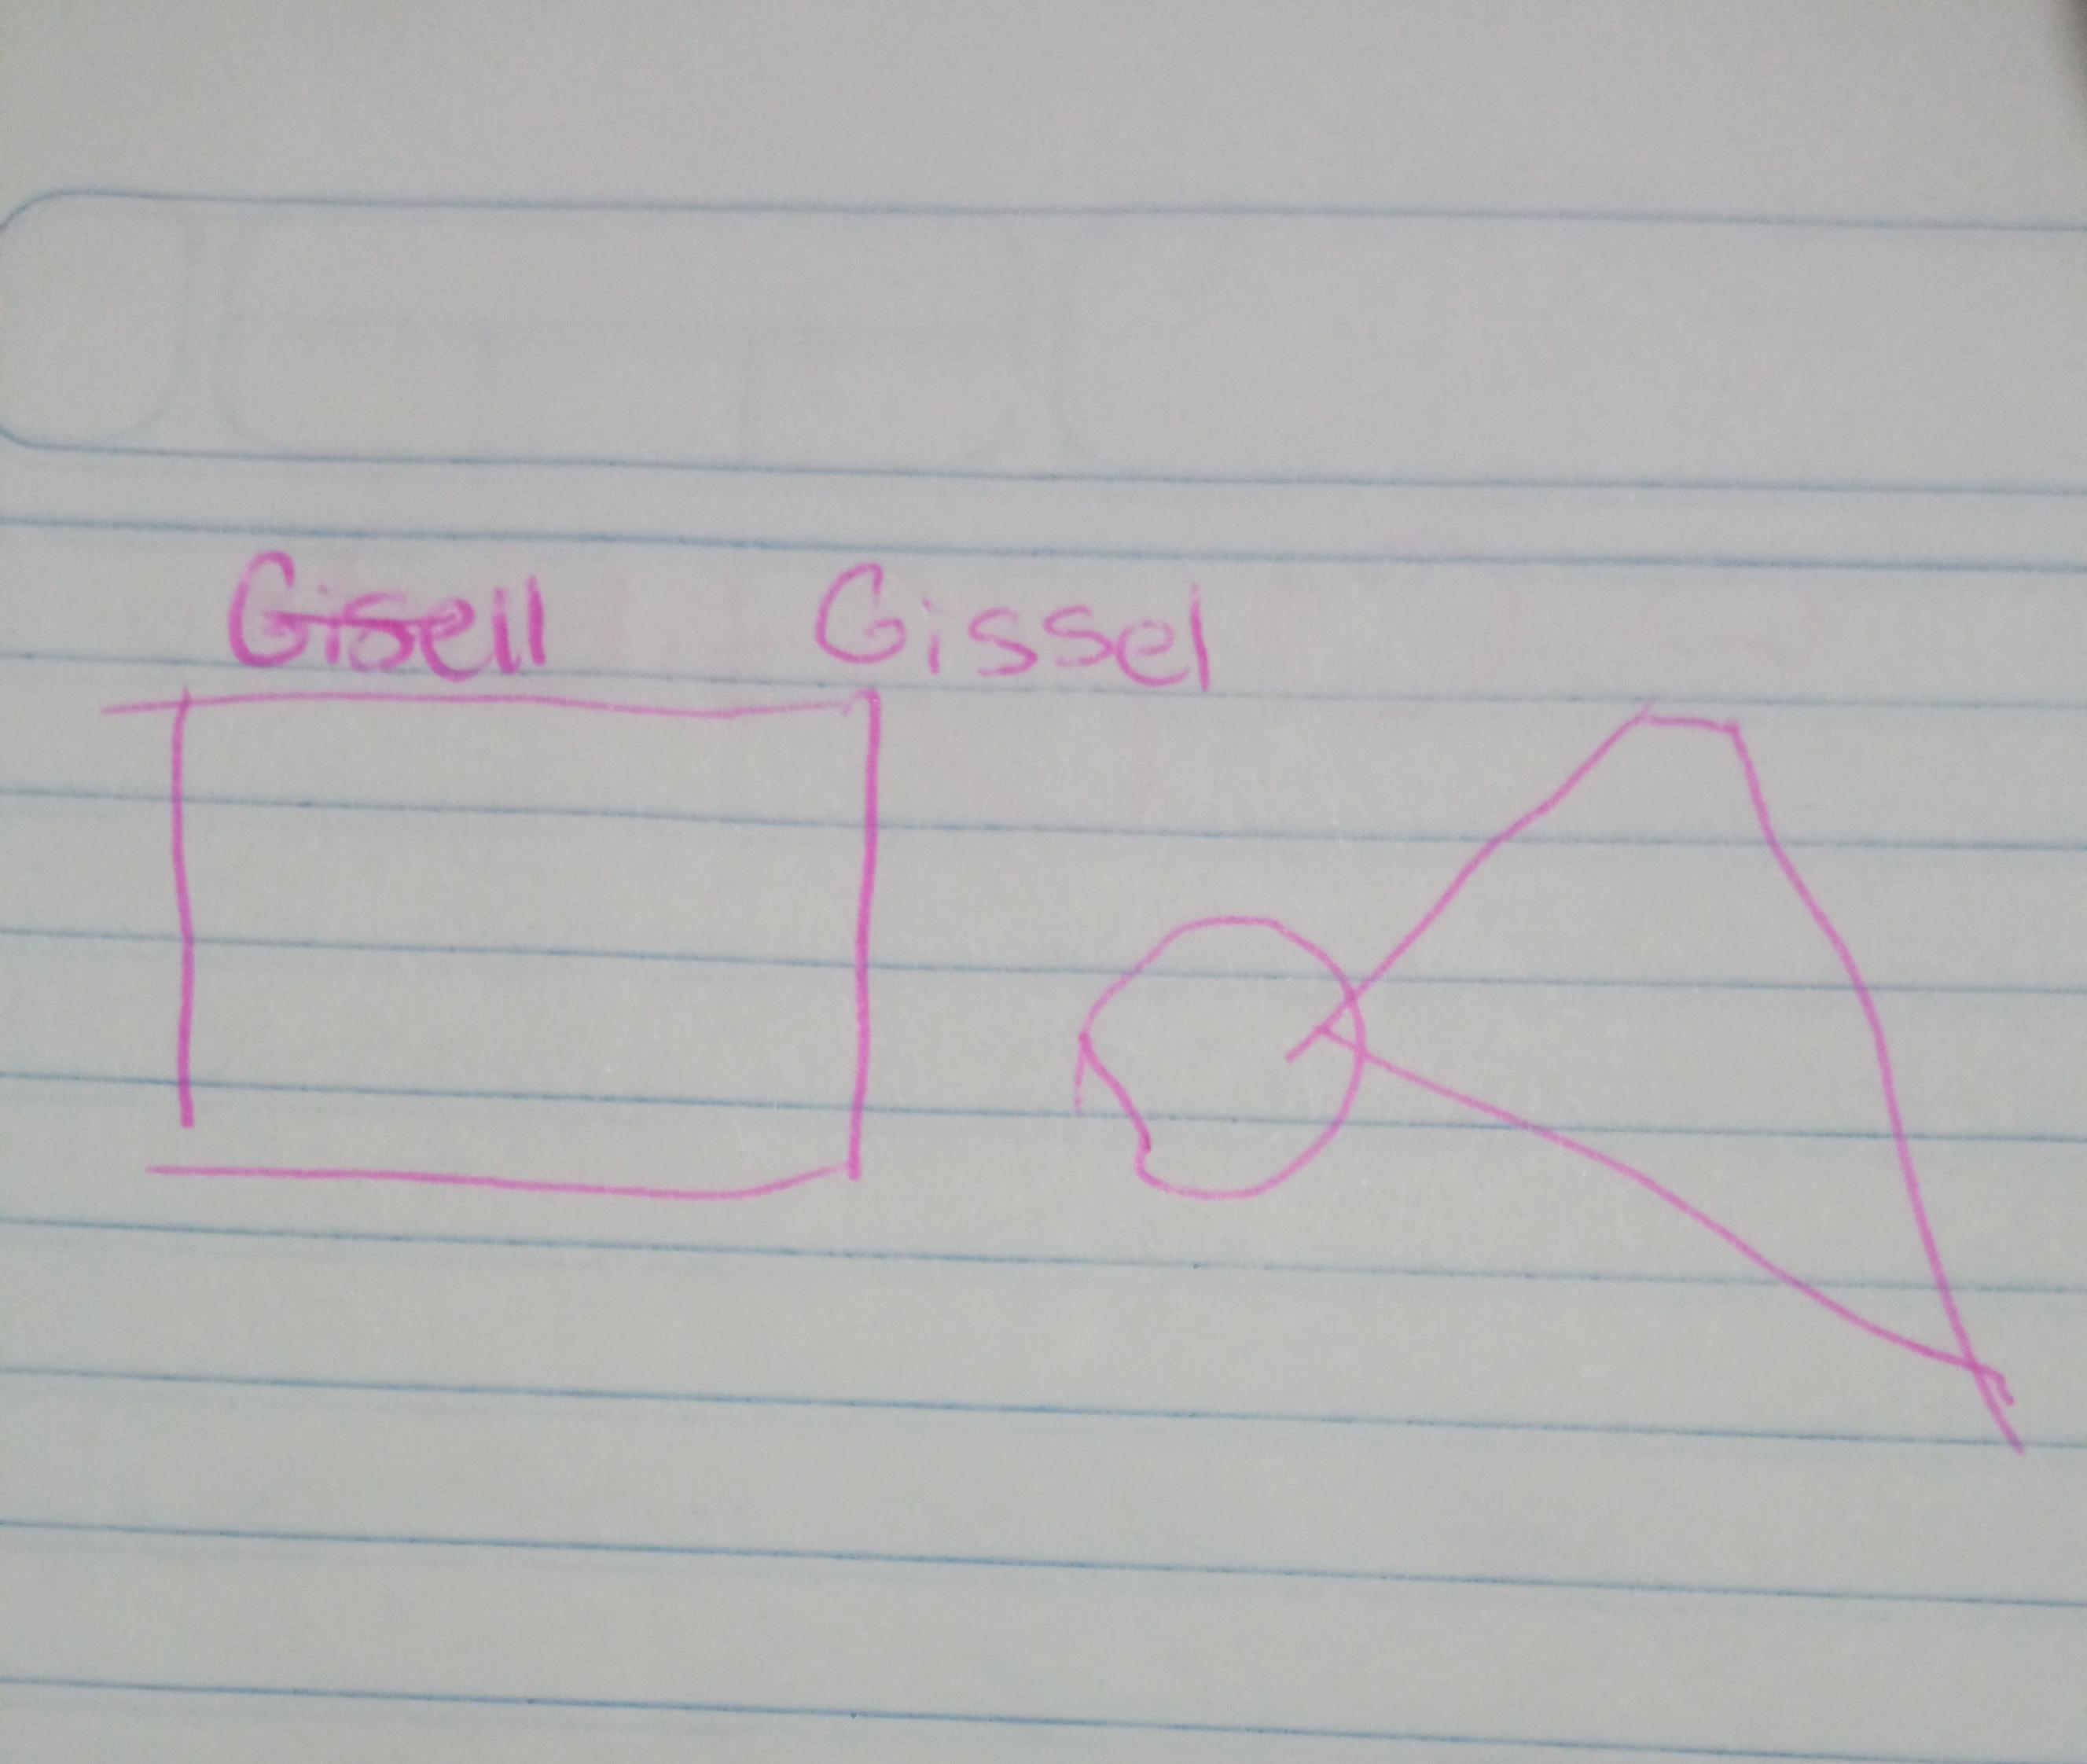 Gisell Gissel